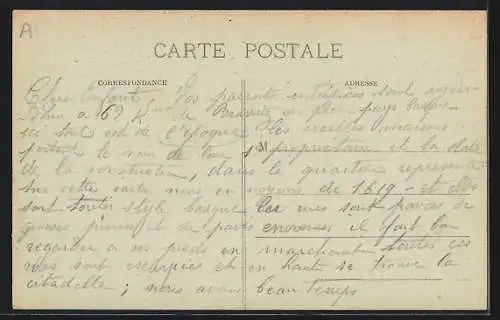 A
CARTE POSTALE
CORRESPONDANCE
ADRESSE
Chers Enfants Vos parents intrépides sont aujour-
d'hui a 62 de Biarritz en plein pays basque
ici tout est de l'époque les vieilles maisons
portent le nom de leur propriétaire et la date
de la construction, dans le quartier représenté
sur cette carte nous en voyons de 1619 - et elles
sont toutes style basque les rues sont pavées de
grosses pierres et de pavés énormes il faut bien
regarder a ses pieds en marchant toutes ces
rues sont escarpées et en haut se trouve la
citadelle ; nous avons beau temps